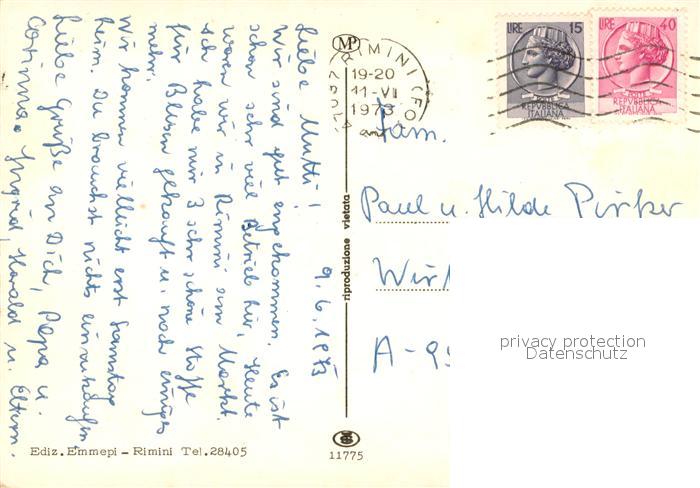 9.6.1973
Liebe Mutti!
Wir sind gut angekommen. Es ist
schon sehr viel Betrieb hier, Heute
waren wir in Rimini am Markt.
Ich habe mir 3 sehr schöne Stoffe
für Blusen gekauft u. noch einiges
mehr.
Wir kommen vielleicht erst Samstag
heim. Du brauchst nichts einzukaufen.
Liebe Grüße an Dich, Papa u.
Corinna, Ingrid, Harald u. Eltern.
Ediz. Emmepi - Rimini Tel. 28405
MP
riproduzione vietata
11775
RIMINI (FO)
19-20
11-VI
1973
LIRE 15
REPVBBLICA
ITALIANA
LIRE 40
REPVBBLICA
ITALIANA
Fam.
Paul u. Hilde Pirker
A-9
privacy protection
Datenschutz